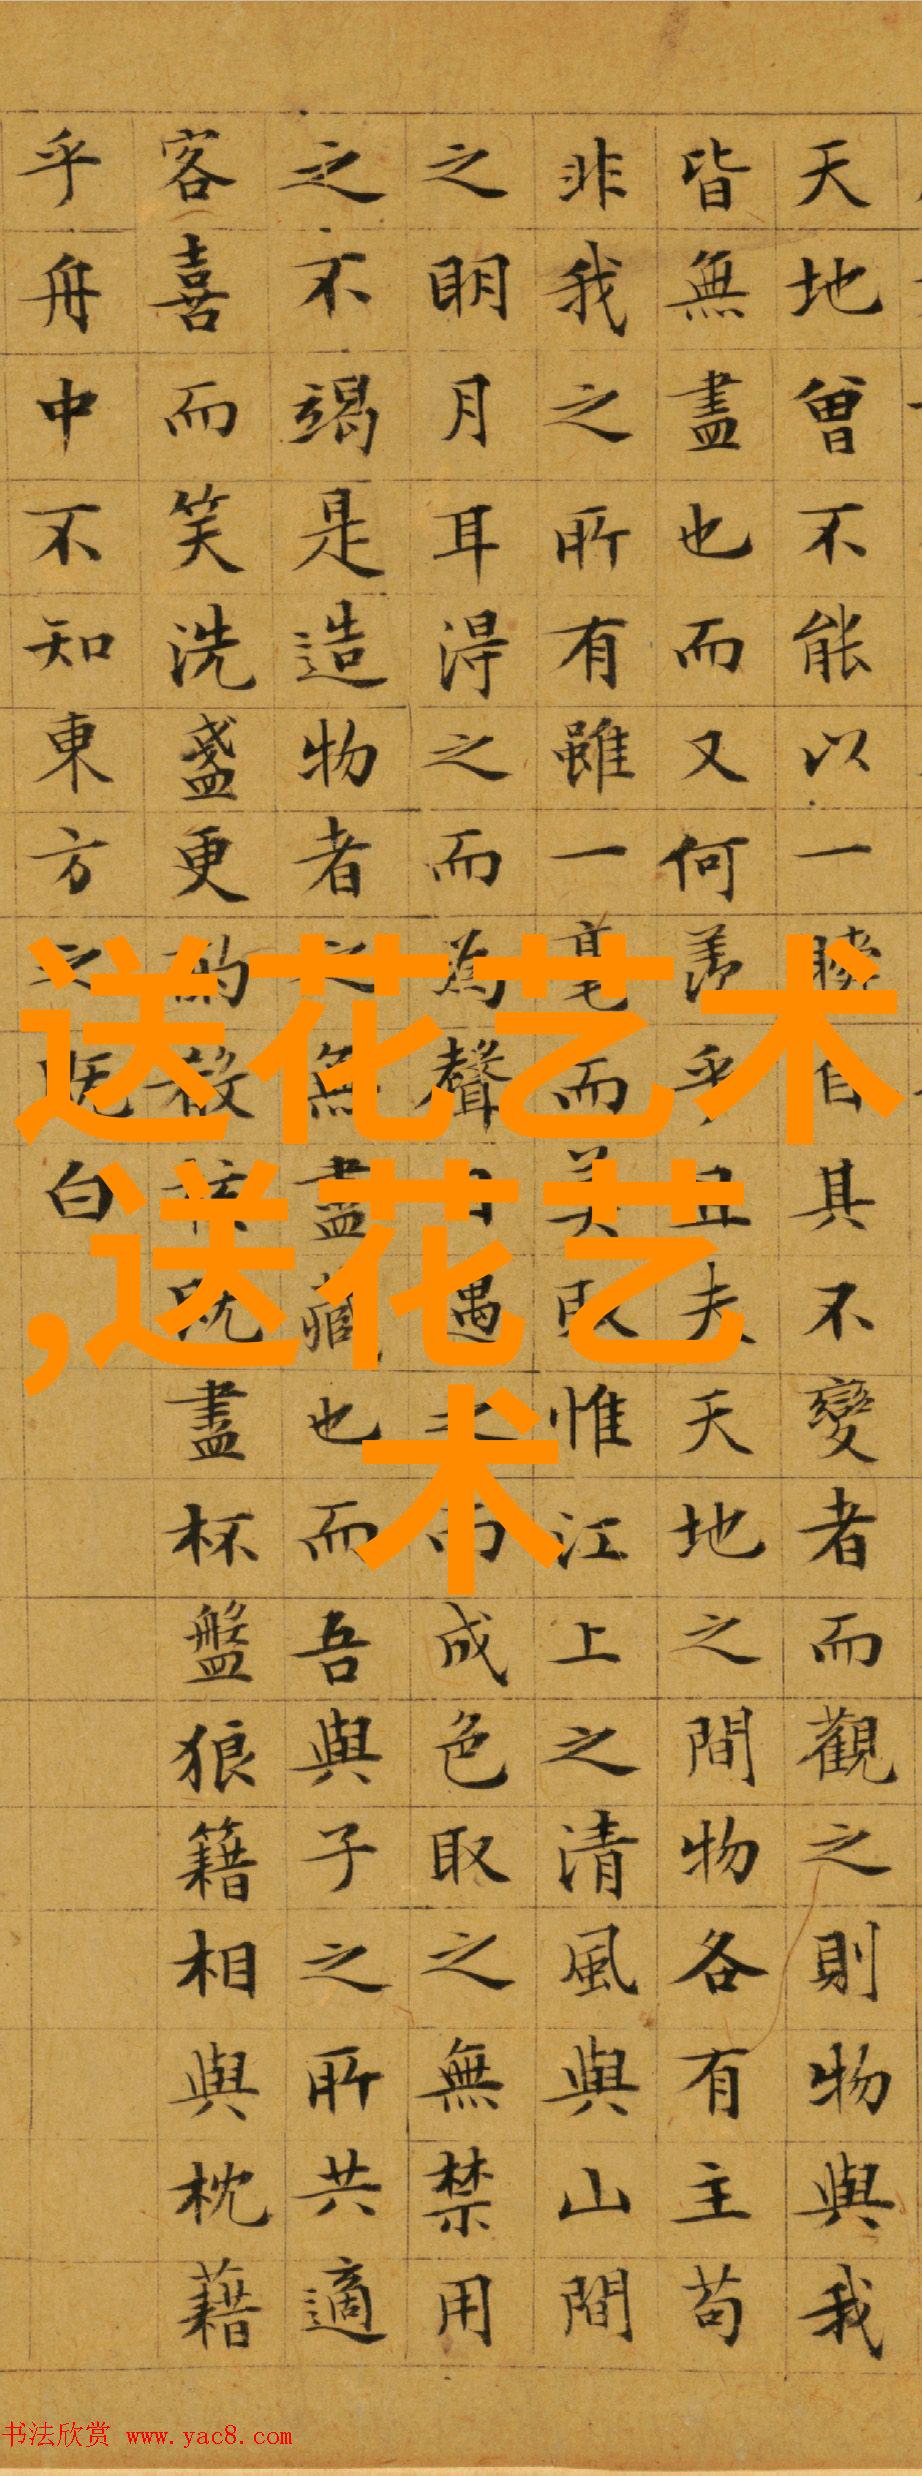 天地曾不能以一瞬自具不變者而觀之則物與我
皆無盡也而又何羨乎且夫天地之間物各有主苟
非我之所有雖一毫而莫取惟江上之清風與山間
之明月耳得之而為聲目遇之而成色取之無禁用
之不竭是造物者之無盡藏也而吾與子之所共適
客喜而笑洗盞更酌殽核既盡杯盤狼籍相與枕藉
乎舟中不知東方之既白
送花艺术
,送花艺
术
书法欣赏 www.yac8.com